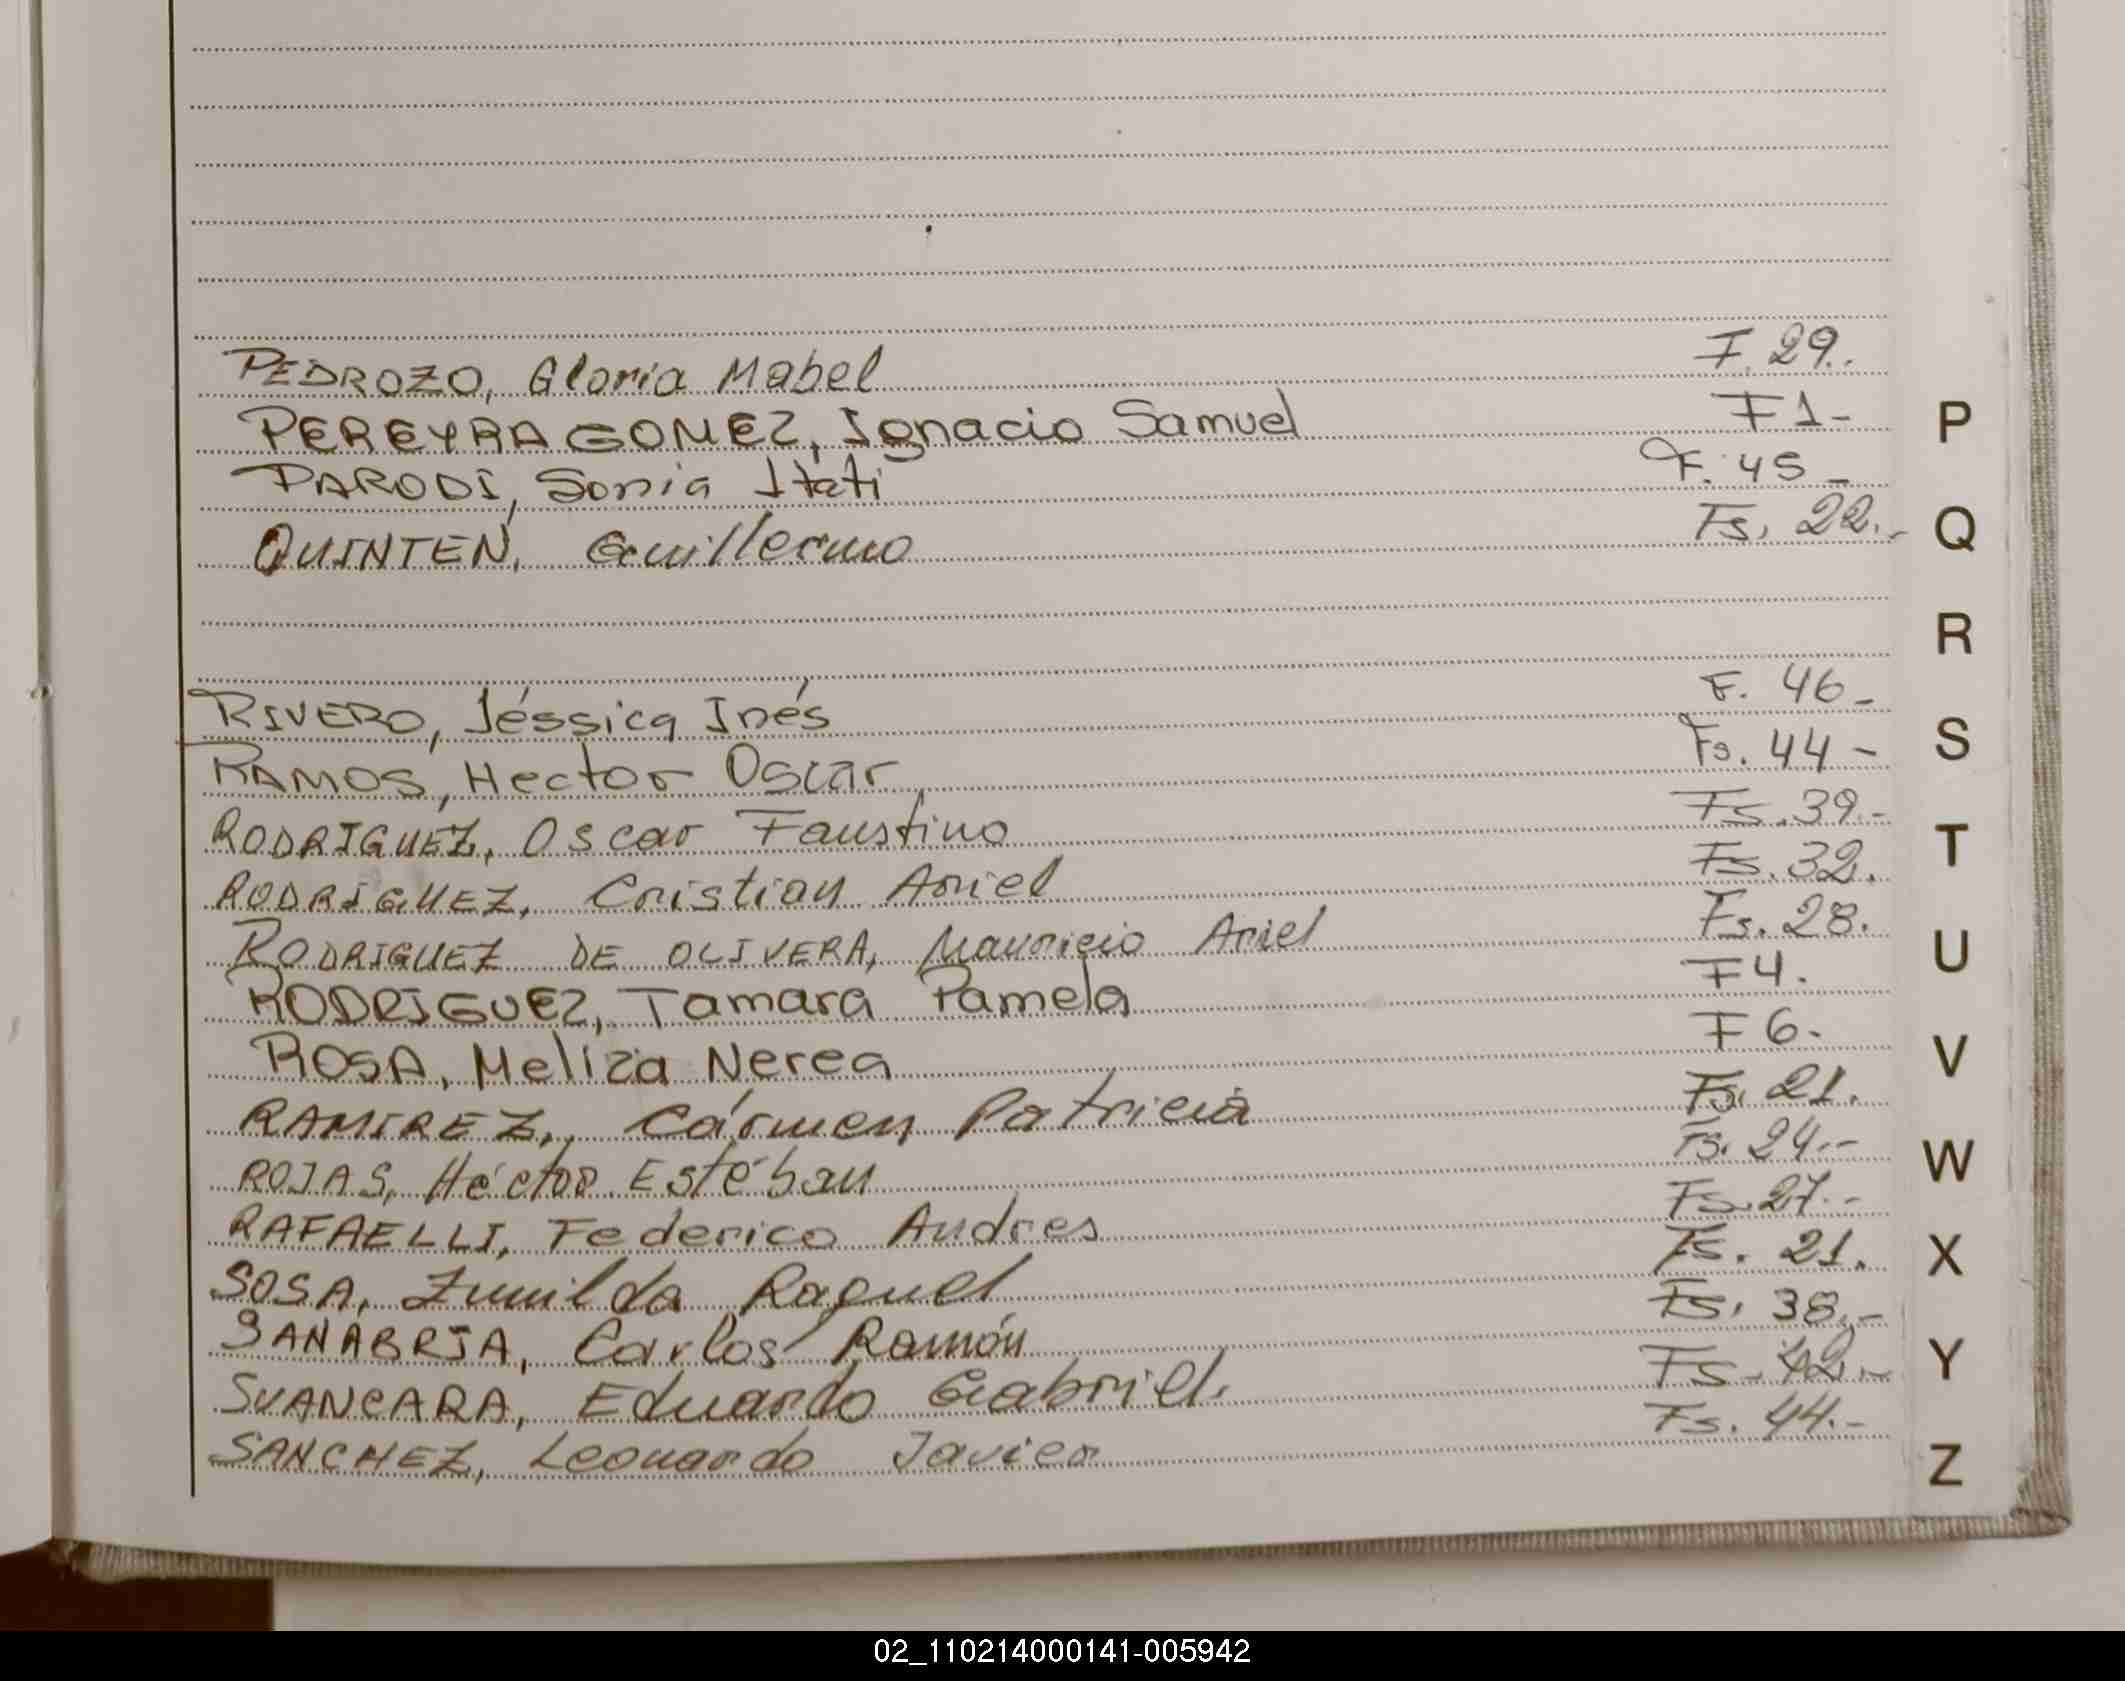 PEDROZO, Gloria Mabel F. 29.
PEREYRA GOMEZ, Ignacio Samuel F 1-
PARODI, Sonia Itati F. 45 -
QUINTEN, Guillermo Fs. 22.-
RIVERO, Jéssica Inés F. 46 -
RAMOS, Hector Oscar Fs. 44 -
RODRIGUEZ, Oscar Faustino Fs. 39.-
RODRIGUEZ, Cristian Ariel Fs. 32.
RODRIGUEZ DE OLIVERA, Mauricio Ariel Fs. 28.
RODRIGUEZ, Tamara Pamela F 4.
ROSA, Meliza Nerea F 6.
RAMIREZ, Cármen Patricia Fs. 21.
ROJAS, Héctor Estéban Fs. 24.-
RAFAELLI, Federico Andres Fs. 27.-
SOSA, Zunilda Raquel Fs. 21.
SANABRIA, Carlos Ramón Fs. 38.-
SVANCARA, Eduardo Gabriel. Fs. 42.-
SANCHEZ, Leonardo Javier Fs. 44.-
P
Q
R
S
T
U
V
W
X
Y
Z
02_110214000141-005942